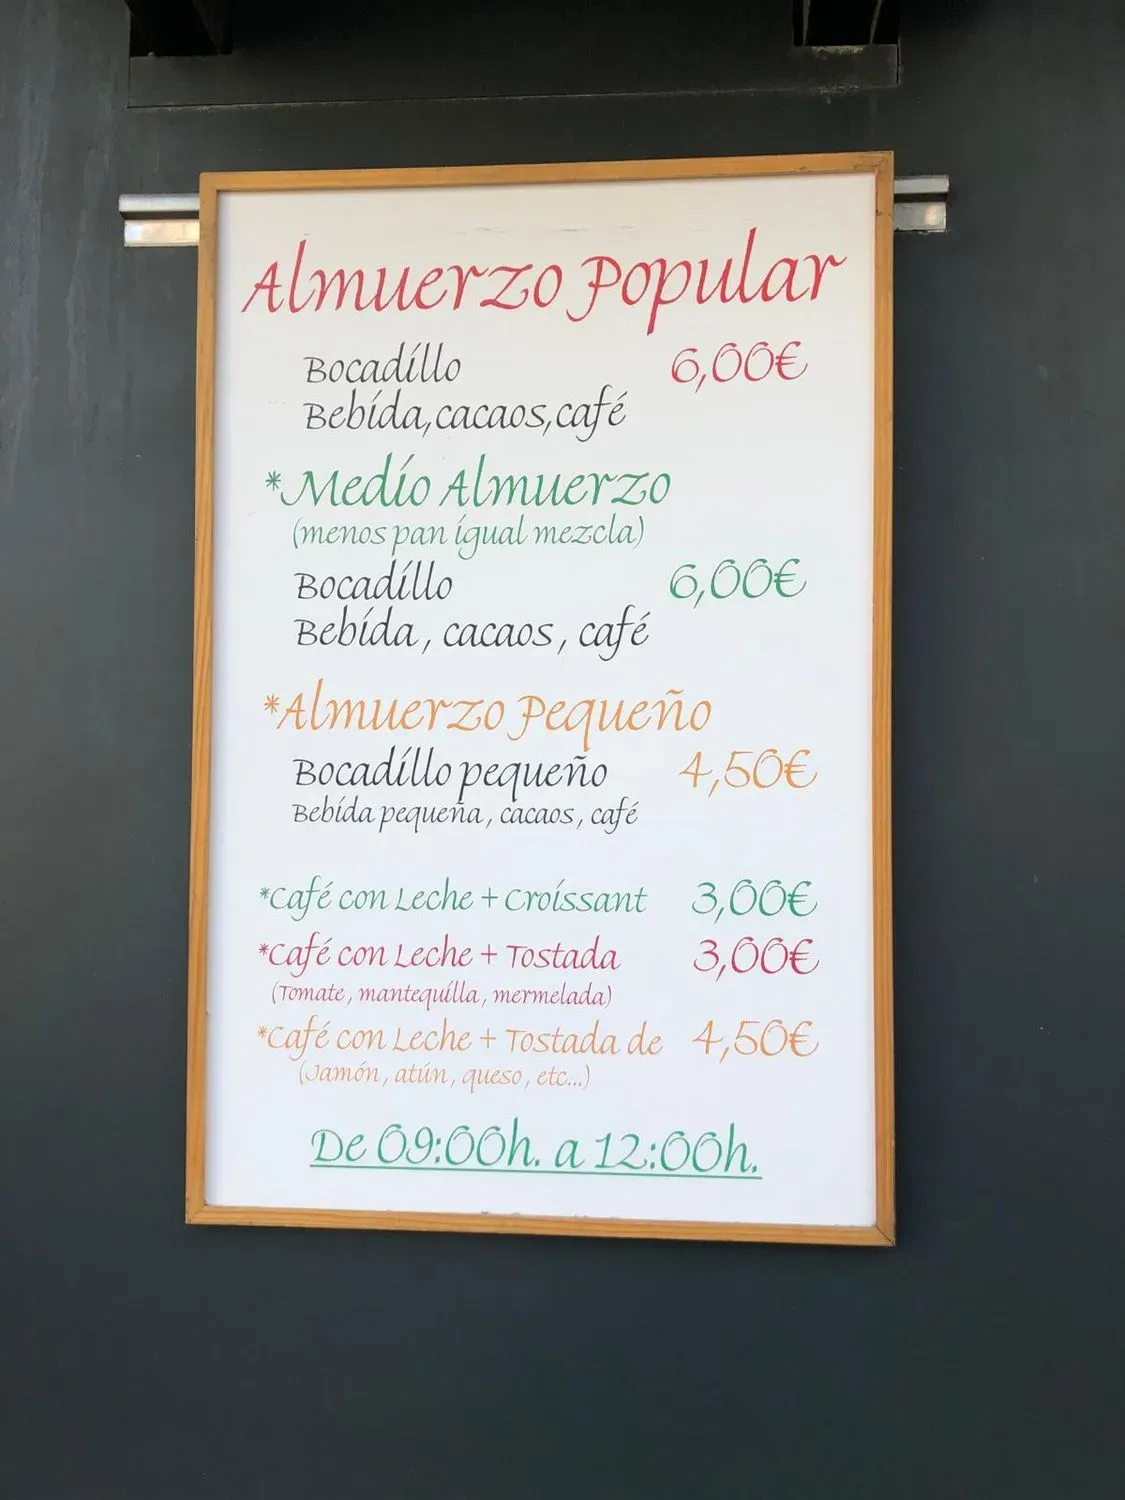 Almuerzo Popular
Bocadillo 6,00€
Bebida, cacaos, café
*Medio Almuerzo
(menos pan igual mezcla)
Bocadillo 6,00€
Bebida, cacaos, café
*Almuerzo Pequeño
Bocadillo pequeño 4,50€
Bebida pequeña, cacaos, café
*Café con Leche + Croissant 3,00€
*Café con Leche + Tostada 3,00€
(Tomate, mantequilla, mermelada)
*Café con Leche + Tostada de 4,50€
(Jamón, atún, queso, etc...)
De 09:00h. a 12:00h.